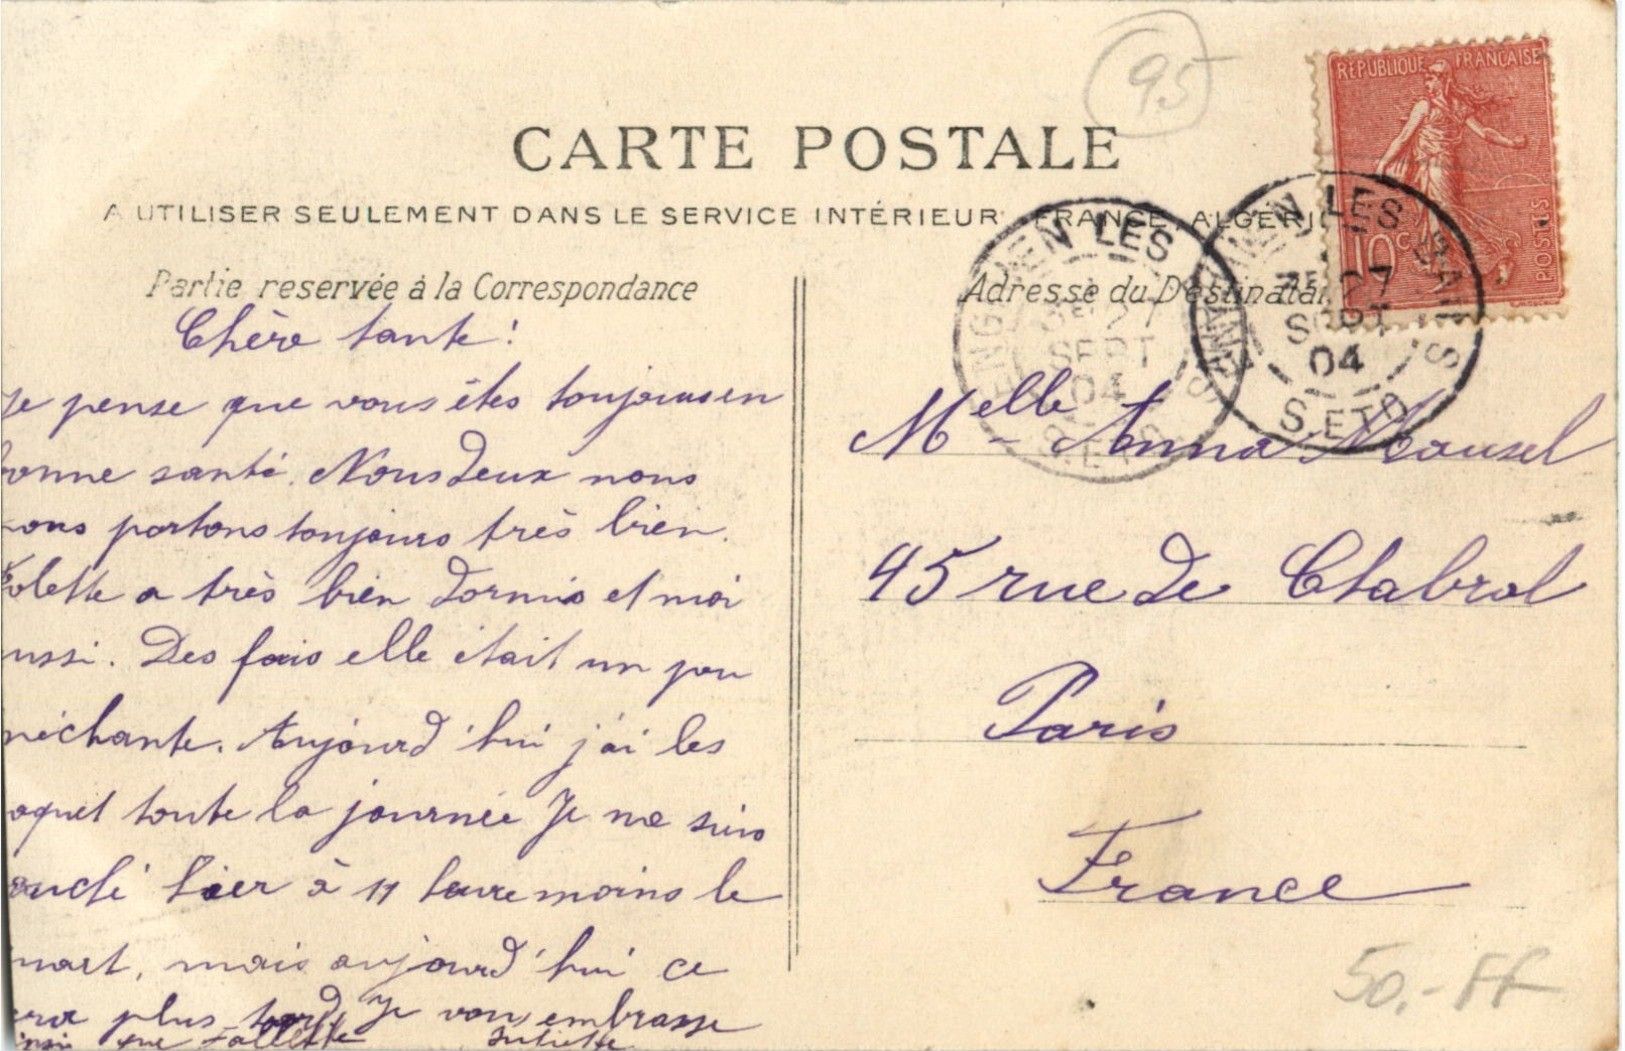 95
RÉPUBLIQUE FRANÇAISE
10 c
POSTES
CARTE POSTALE
A UTILISER SEULEMENT DANS LE SERVICE INTÉRIEUR FRANCE, ALGÉRI
Partie reservée à la Correspondance
Adresse du Destinatai
ENGHIEN LES
SEPT
04
S. ET O.
ENGHIEN LES BAINS
27
SEPT
04
S. ET O.
Chère tante!
Je pense que vous êtes toujours en
bonne santé. Nous deux nous
nous portons toujours très bien.
olette a très bien dormis et moi
ussi. Des fois elle était un peu
méchante. Aujourd'hui j'ai les
aquet toute la journée Je me suis
ouché hier à 11 heure moins le
quart, mais aujourd'hui ce
era plus tard Je vous embrasse
insi que Juliette
Melle Anna Mousel
45 rue de Chabrol
Paris
France
50,- FF